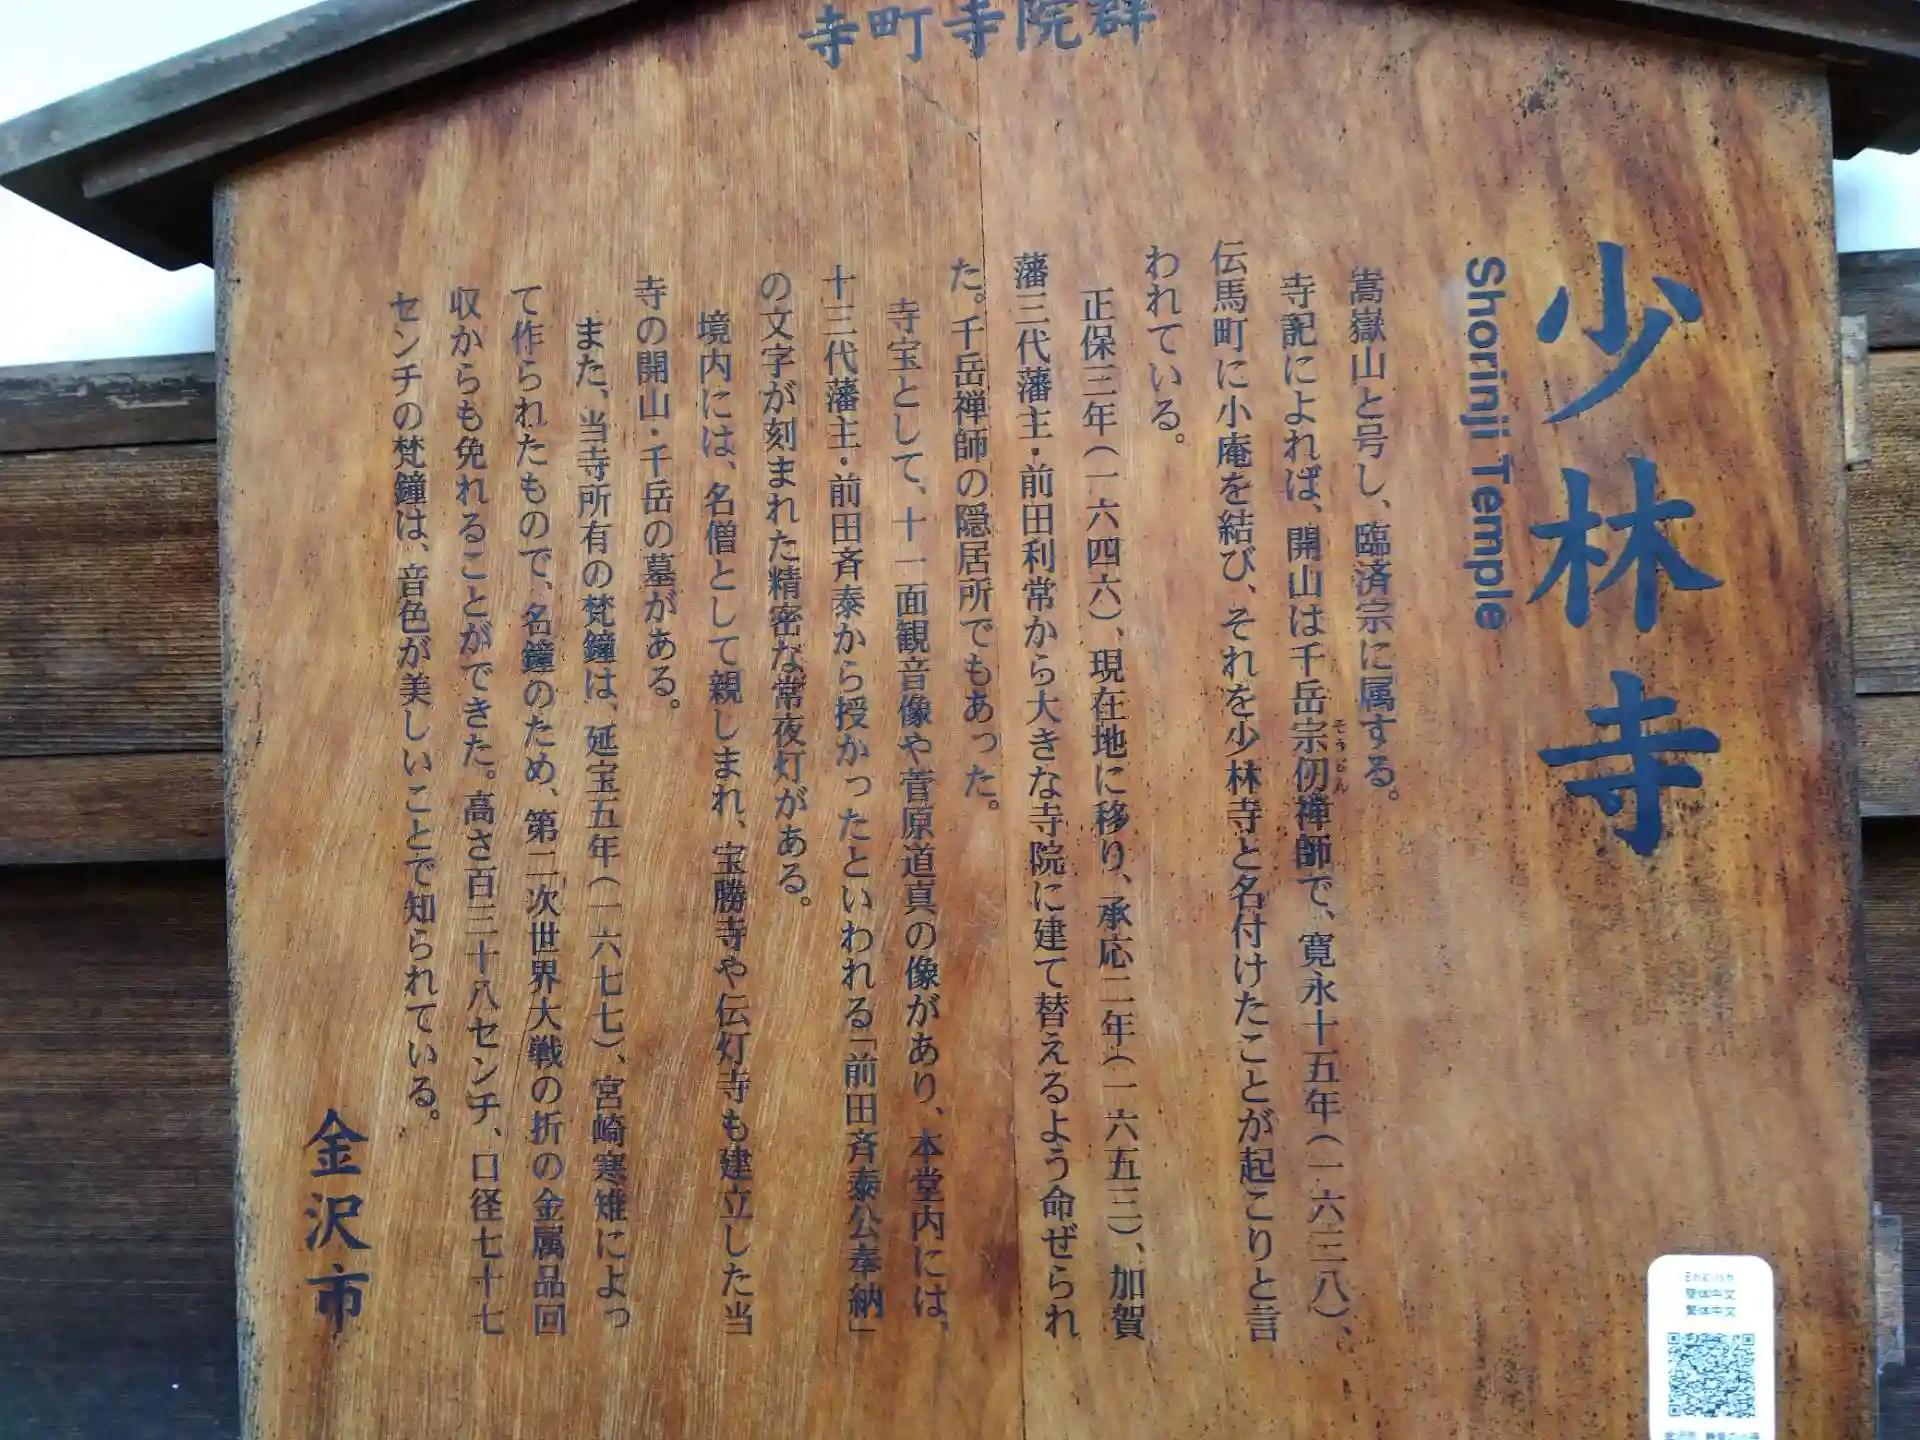 寺町寺院群
少林寺
Shorinji Temple
嵩嶽山と号し、臨済宗に属する。
寺記によれば、開山は千岳宗仞禅師で、寛永十五年(一六三八)、
伝馬町に小庵を結び、それを少林寺と名付けたことが起こりと言
われている。
正保三年(一六四六)、現在地に移り、承応二年(一六五三)、加賀
藩三代藩主・前田利常から大きな寺院に建て替えるよう命ぜられ
た。千岳禅師の隠居所でもあった。
寺宝として、十一面観音像や菅原道真の像があり、本堂内には、
十三代藩主・前田斉泰から授かったといわれる「前田斉泰公奉納」
の文字が刻まれた精密な常夜灯がある。
境内には、名僧として親しまれ、宝勝寺や伝灯寺も建立した当
寺の開山・千岳の墓がある。
また、当寺所有の梵鐘は、延宝五年(一六七七)、宮崎寒雉によっ
て作られたもので、名鐘のため、第二次世界大戦の折の金属品回
収からも免れることができた。高さ百三十八センチ、口径七十七
センチの梵鐘は、音色が美しいことで知られている。
金沢市
English
简体中文
繁体中文